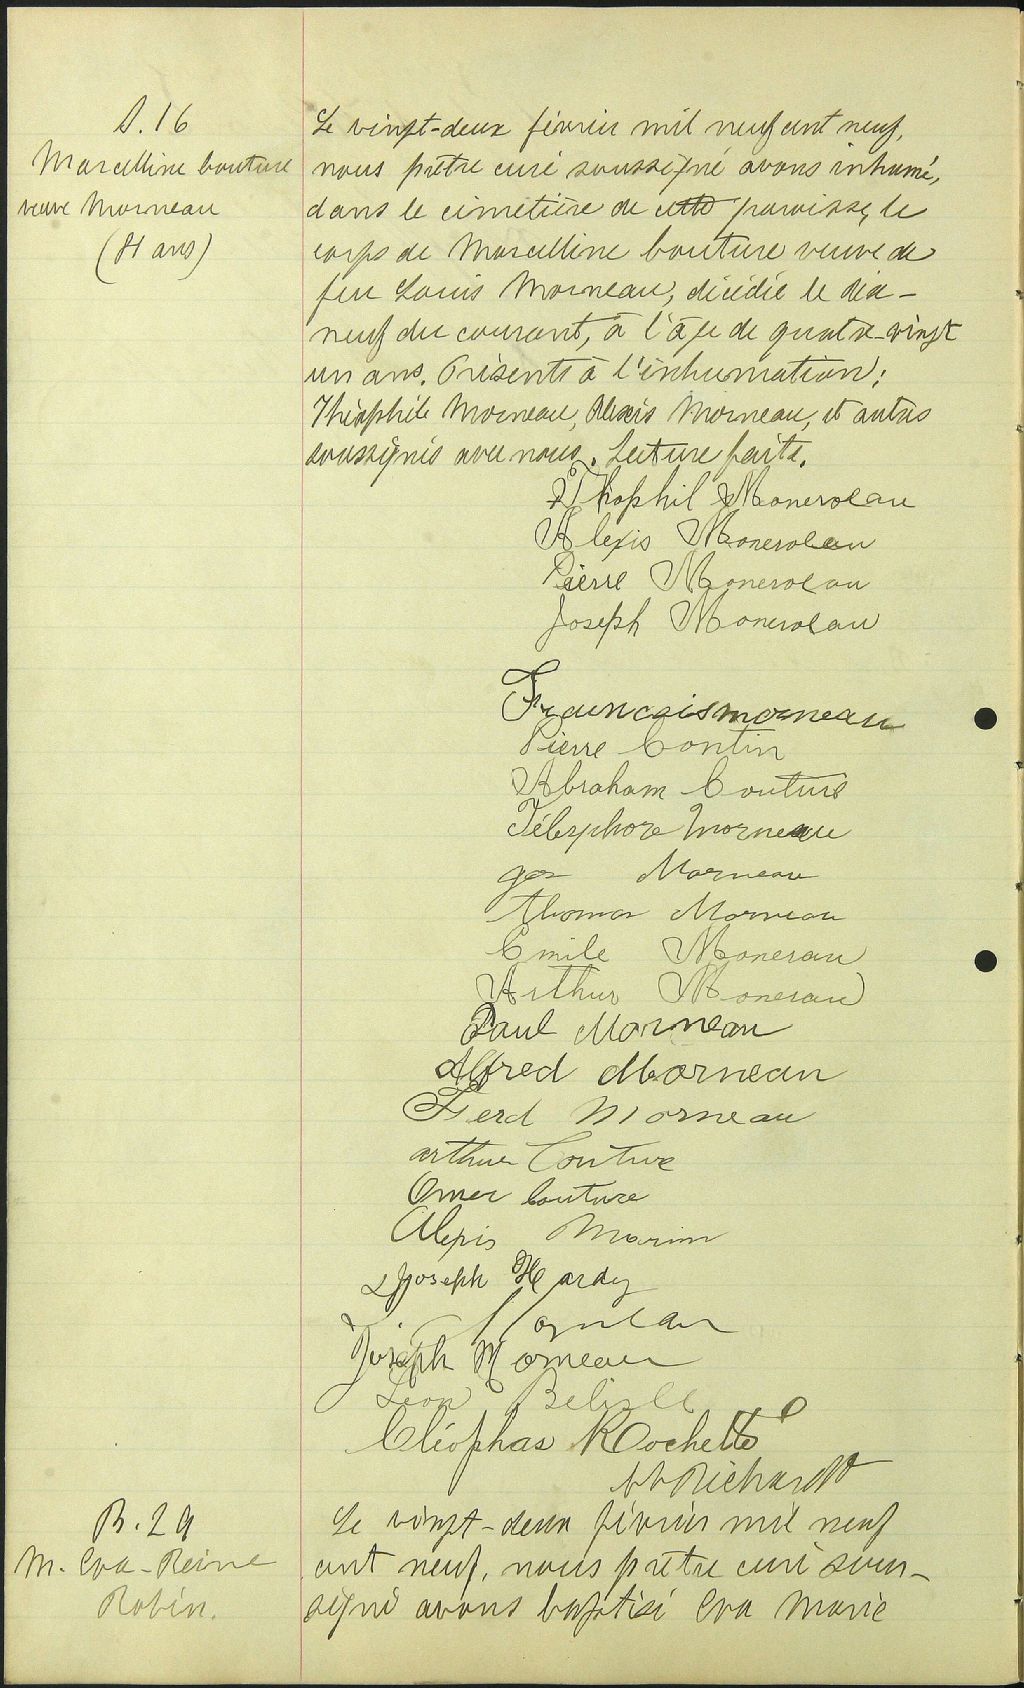 S. 16
Marcelline Couture
veuve Morneau
(81 ans)
Le vingt-deux février mil neuf cent neuf,
nous prêtre curé soussigné avons inhumé,
dans le cimetière de cette paroisse, le
corps de Marcelline Couture veuve de
feu Louis Morneau, décédée le dix-
neuf du courant, à l'âge de quatre-vingt
un ans. Présents à l'inhumation:
Théophile Morneau, Alexis Morneau, et autres
soussignés avec nous. Lecture faite.
Thophil Moneroeau
Alexis Moneroeau
Pierre Moneroeau
Joseph Moneroeau
Francois morneau
Pierre Contin
Abraham Couture
Télesphore Morneau
Morneau
Thomas Morneau
Emile Monerau
Arthur Monerau
Paul Morneau
Alfred Morneau
Ferd Morneau
arthur Couture
Omer Couture
Alexis Morin
Joseph Hardy
Joseph Morneau
Leon Belisle
Cléophas Rochette
Richard Ptre
B. 29
M. Eva-Reine
Robin.
Le vingt-deux février mil neuf
cent neuf, nous prêtre curé sous-
signé avons baptisé Eva Marie